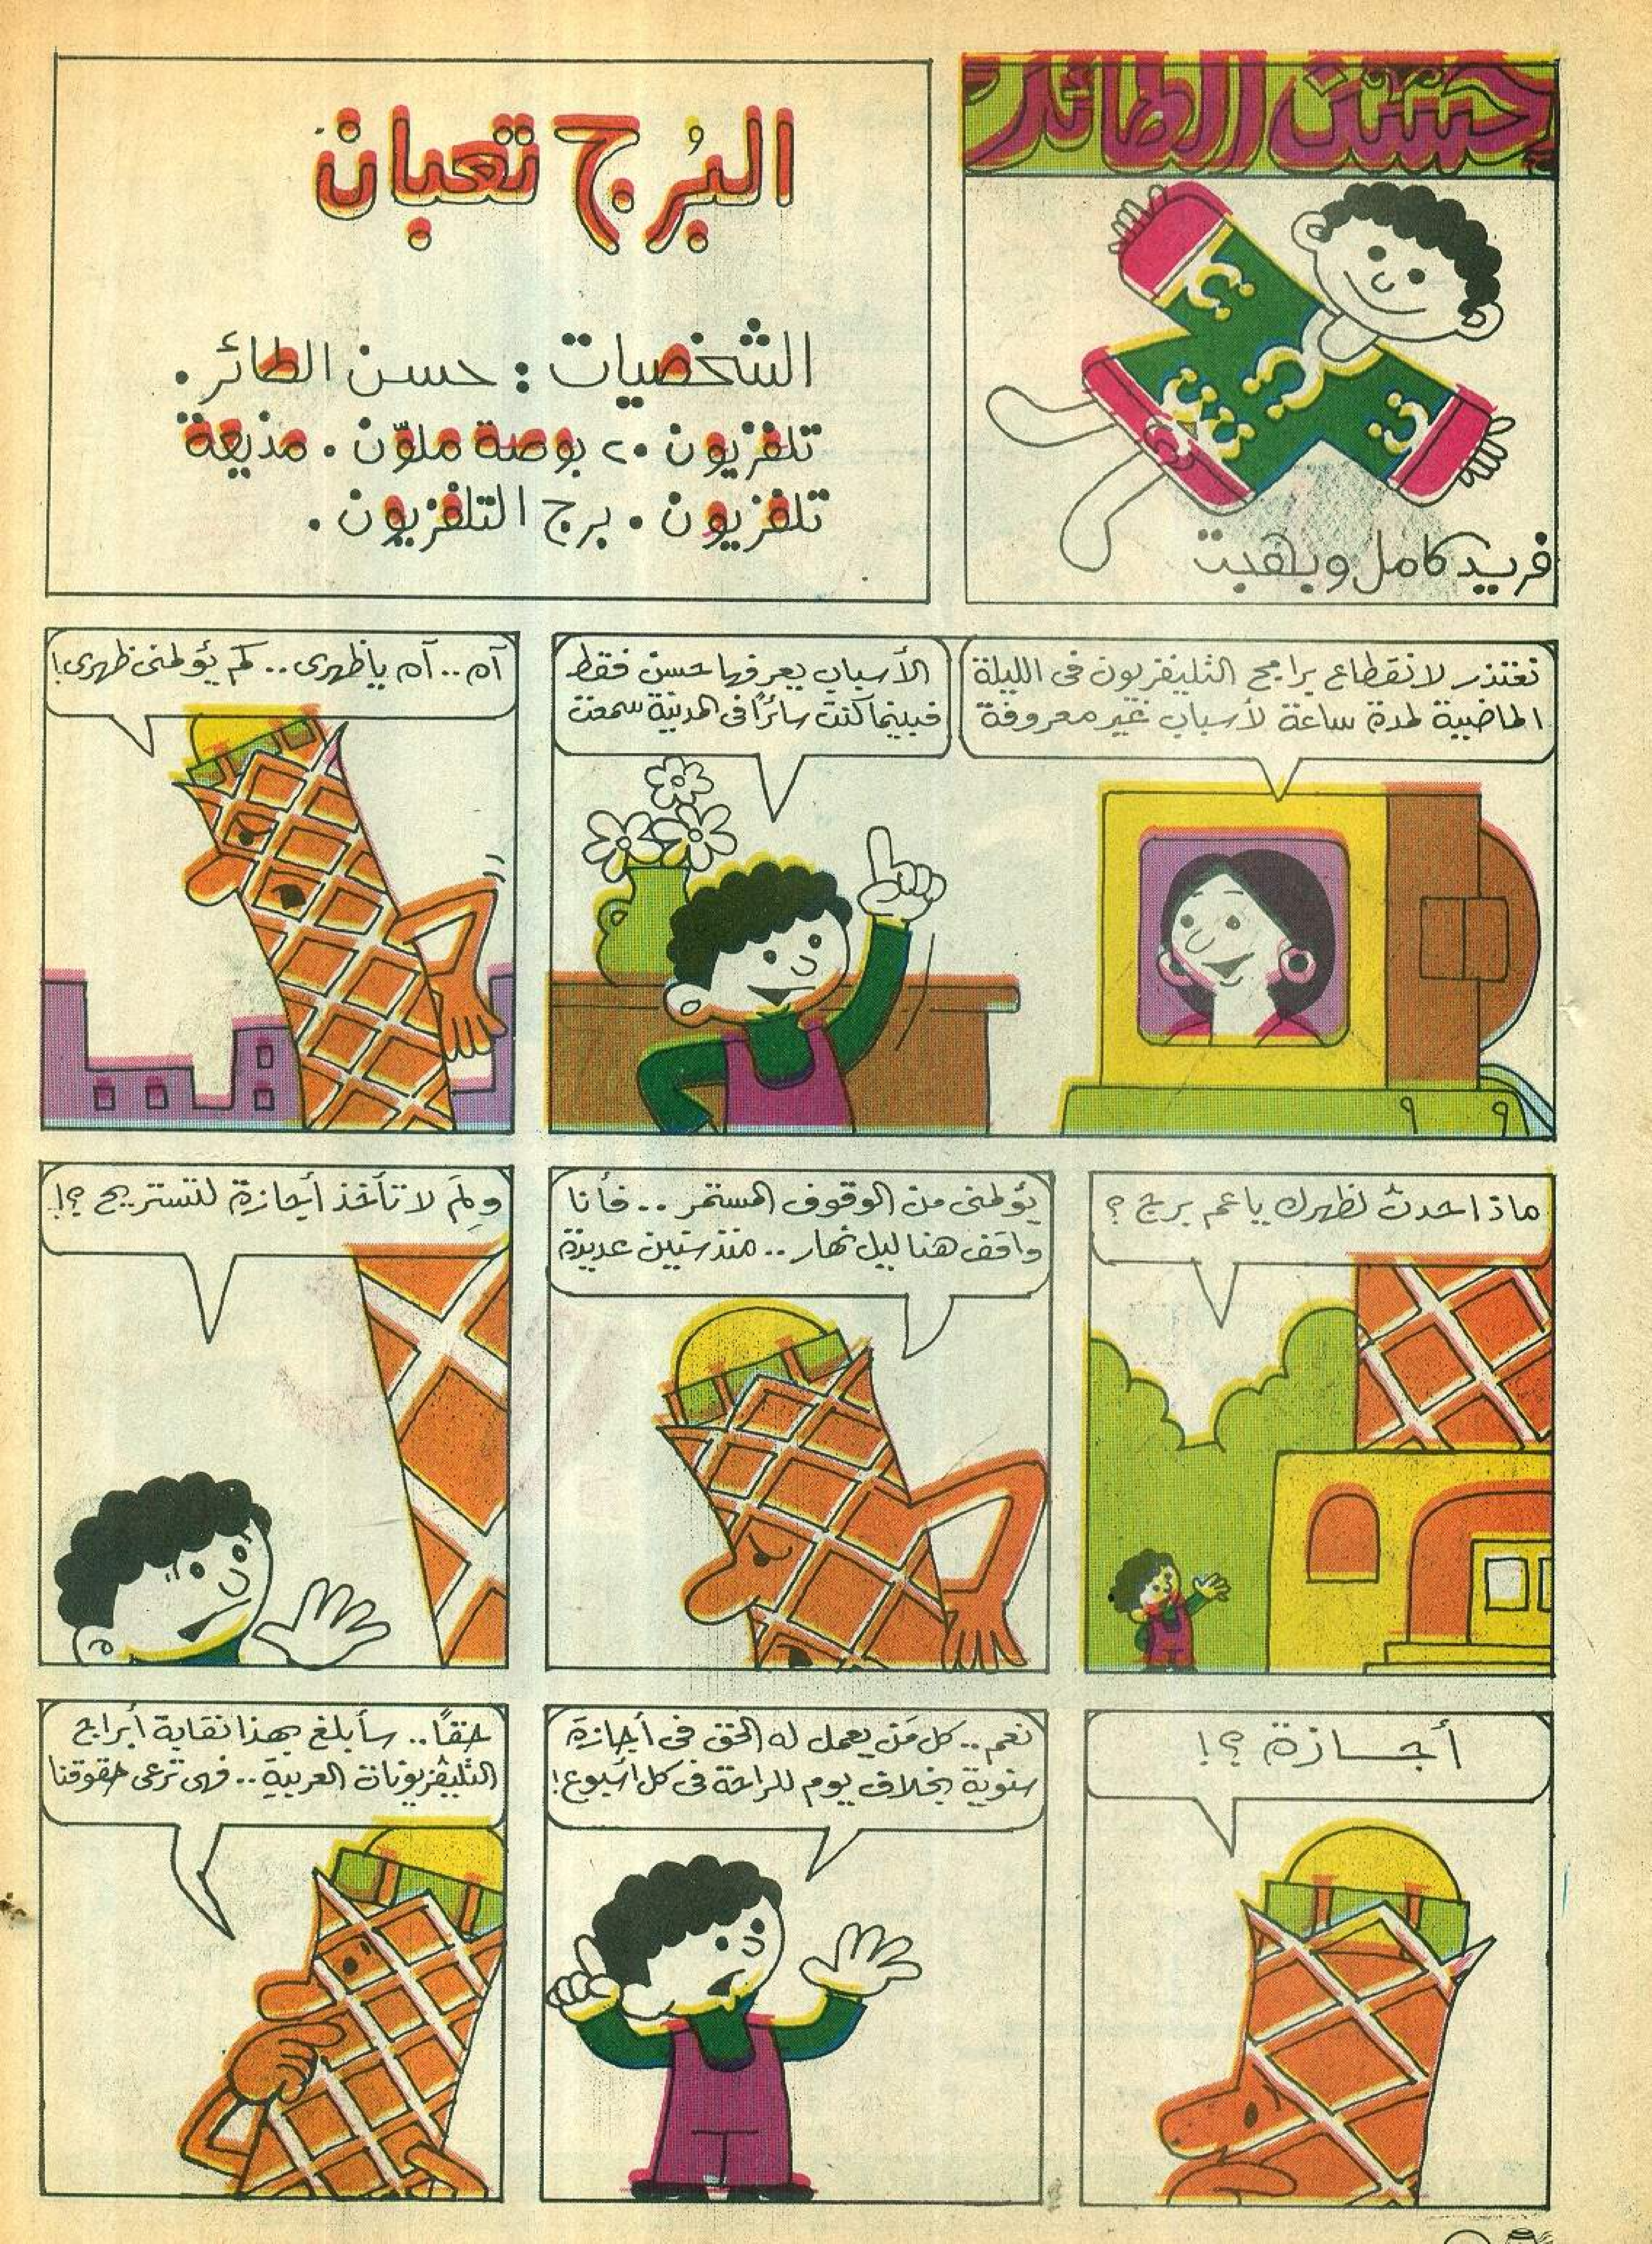 حسن الطائر
فريد كامل وبهجت
البُرج تعبان
الشخصيات : حسن الطائر .
تلفزيون ٢٠ بوصة ملوّن . مذيعة
تلفزيون . برج التلفزيون .
نعتذر لانقطاع برامج التليفزيون فى الليلة
الماضية لمدة ساعة لأسباب غير معروفة
الأسباب يعرفها حسن فقط
فبينما كنت سائرًا فى المدينة سمعت
آه .. آه ياظهرى .. كم يؤلمنى ظهرى!
ماذا حدث لظهرك ياعم برج ؟
يؤلمنى من الوقوف المستمر .. فأنا
واقف هنا ليل نهار .. منذ سنين عديدة
ولِمَ لا تأخذ أجازة لتستريح ؟!
أجــازة ؟!
نعم .. كل مَن يعمل له الحق فى أجازة
سنوية بخلاف يوم للراحة فى كل أسبوع!
حقًا .. سأبلغ بهذا نقابة أبراج
التليفزيونات العربية .. فهى ترعى حقوقنا